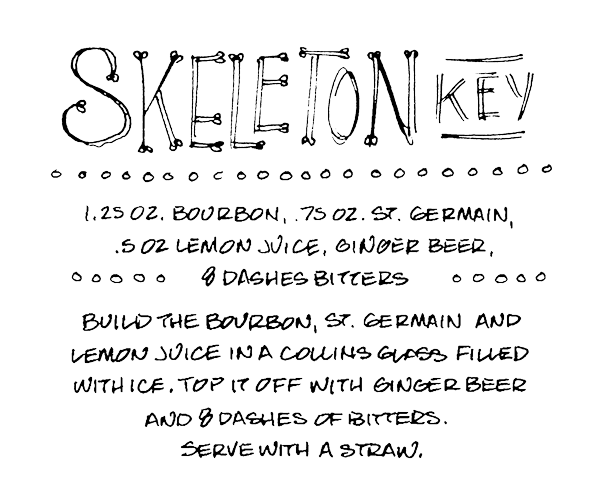 SKELETON KEY
1.25 OZ. BOURBON, .75 OZ. ST. GERMAIN,
.5 OZ LEMON JUICE, GINGER BEER,
8 DASHES BITTERS
BUILD THE BOURBON, ST. GERMAIN AND
LEMON JUICE IN A COLLINS GLASS FILLED
WITH ICE. TOP IT OFF WITH GINGER BEER
AND 8 DASHES OF BITTERS.
SERVE WITH A STRAW.